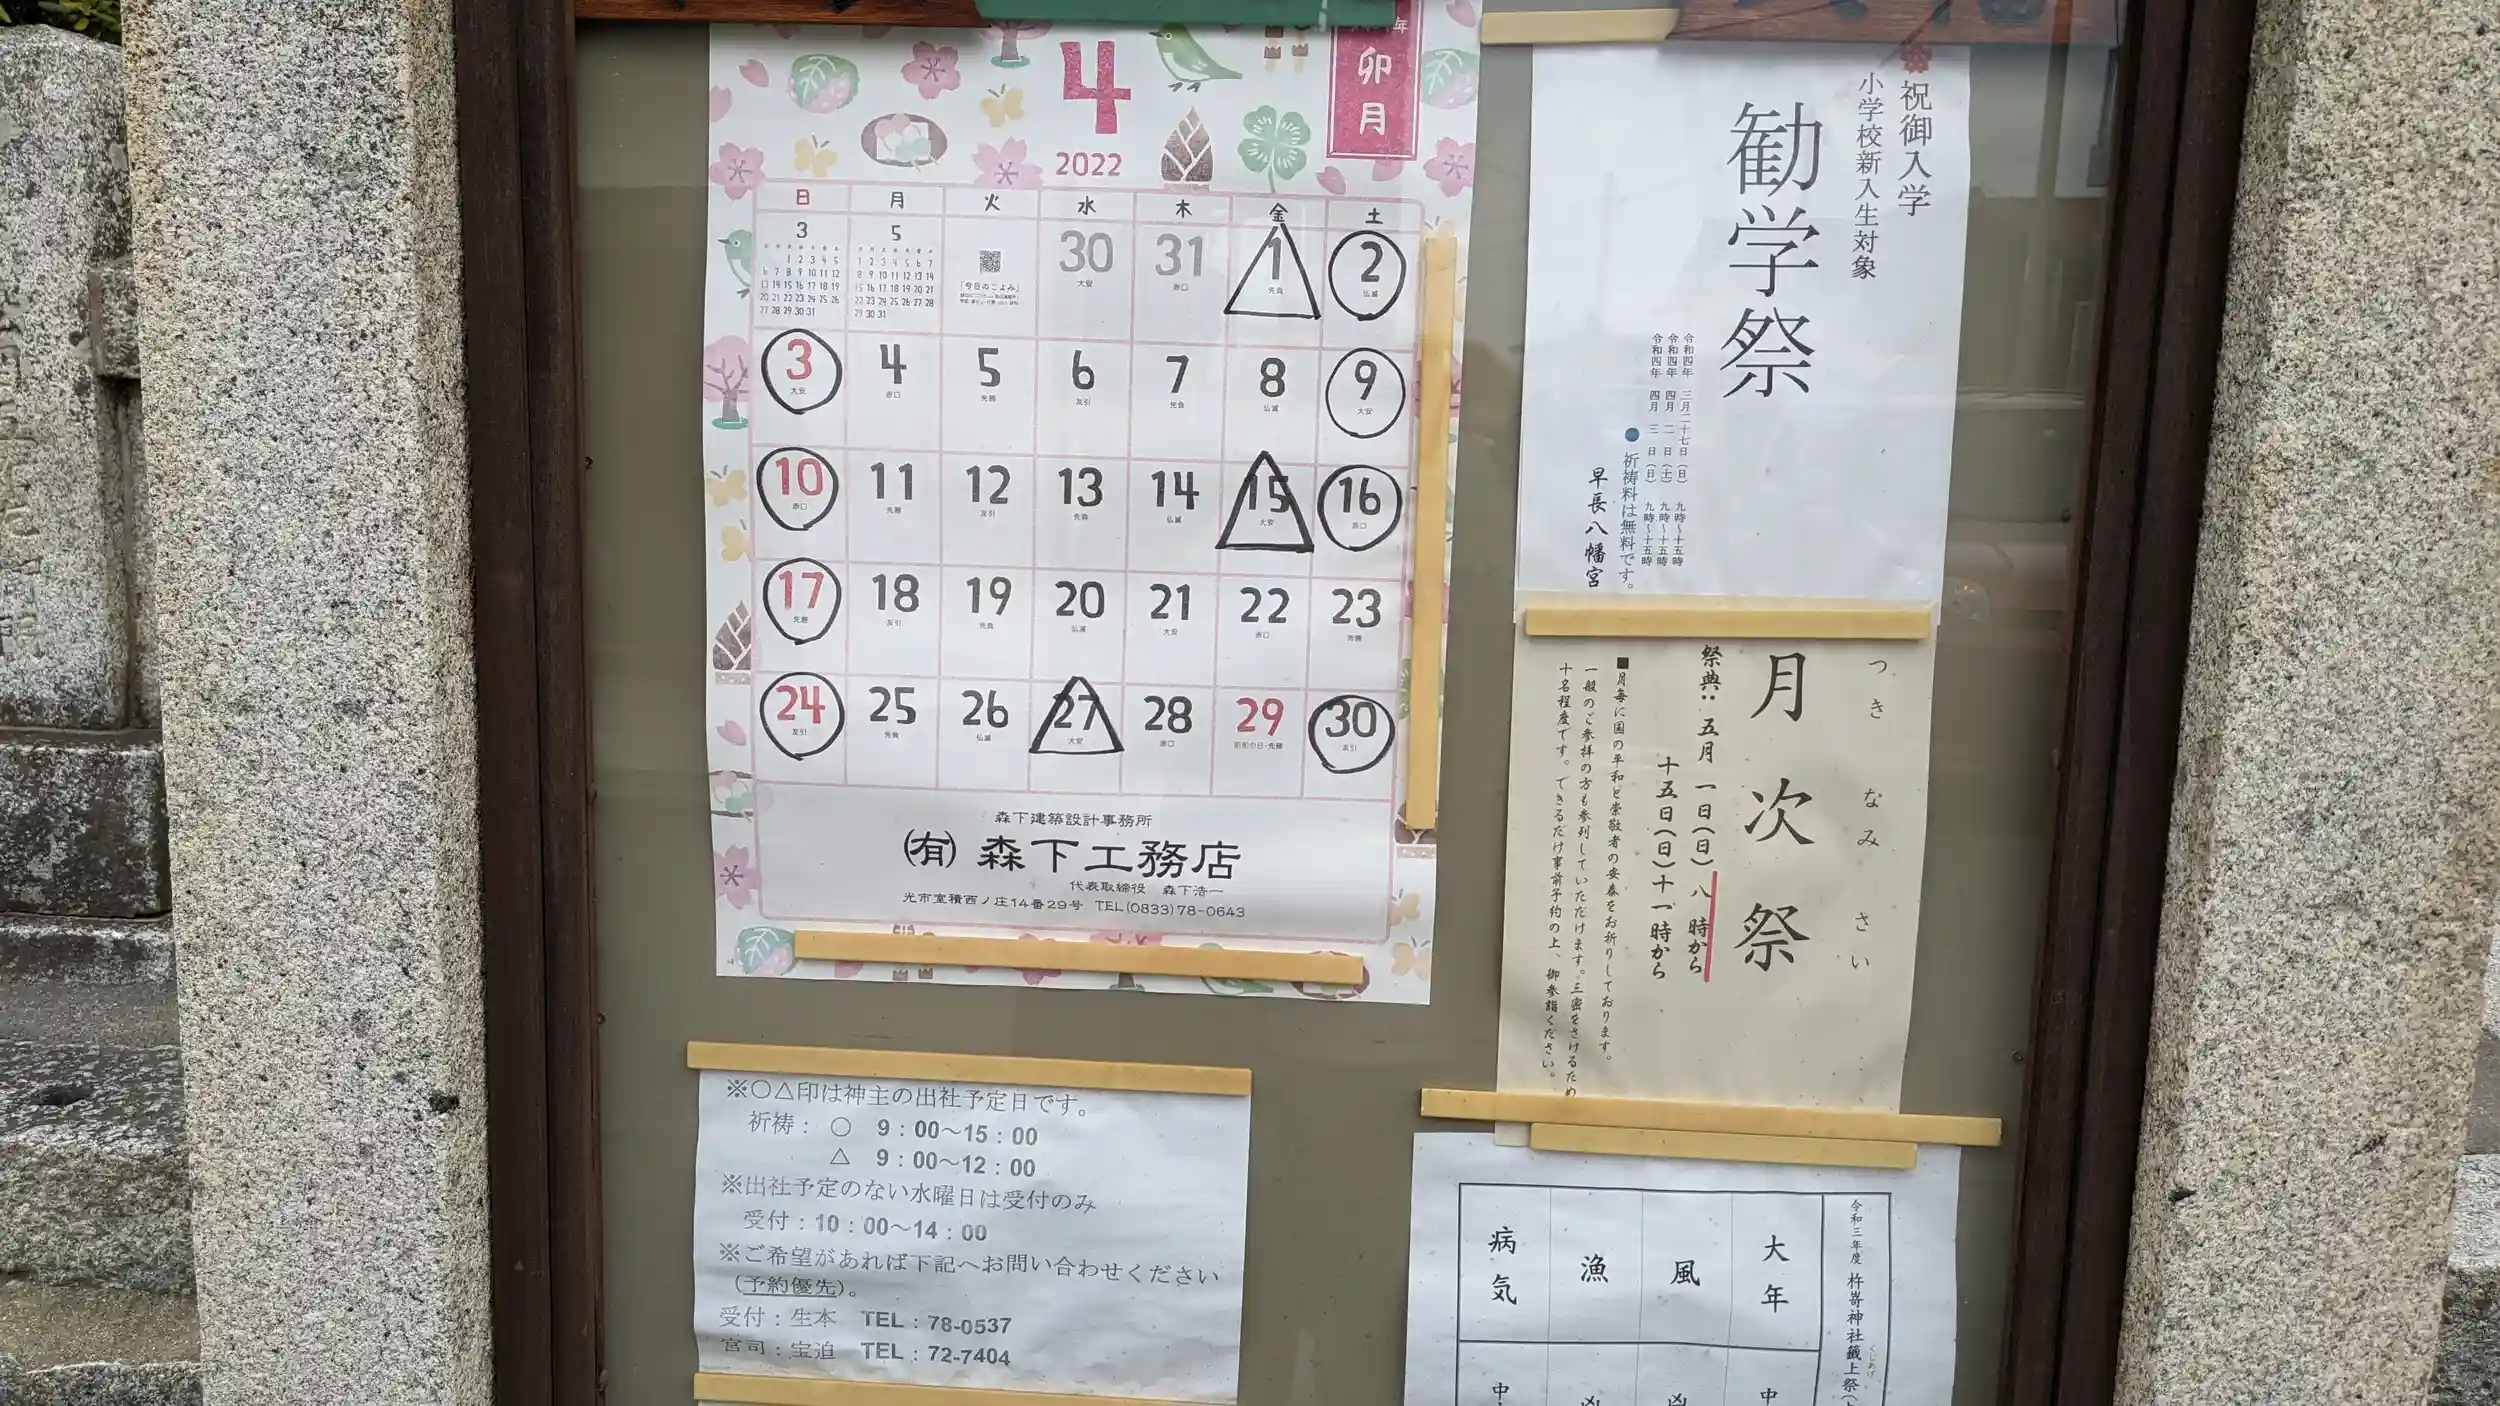 4
2022
年
卯月
日 月 火 水 木 金 土
3
1 2 3 4 5
6 7 8 9 10 11 12
13 14 15 16 17 18 19
20 21 22 23 24 25 26
27 28 29 30 31
5
1 2 3 4 5 6 7
8 9 10 11 12 13 14
15 16 17 18 19 20 21
22 23 24 25 26 27 28
29 30 31
「今日のこよみ」
30 31 1 2
大安 赤口 先負 仏滅
3 4 5 6 7 8 9
大安 赤口 先勝 友引 先負 仏滅 大安
10 11 12 13 14 15 16
赤口 先勝 友引 先負 仏滅 大安 赤口
17 18 19 20 21 22 23
先勝 友引 先負 仏滅 大安 赤口 先勝
24 25 26 27 28 29 30
友引 先負 仏滅 大安 赤口 昭和の日・先勝 友引
森下建築設計事務所
㈲ 森下工務店
代表取締役 森下浩一
光市室積西ノ庄14番29号 TEL(0833)78-0643
※○△印は神主の出社予定日です。
祈祷：○ 9：00～15：00
△ 9：00～12：00
※出社予定のない水曜日は受付のみ
受付：10：00～14：00
※ご希望があれば下記へお問い合わせください
（予約優先）。
受付：生本 TEL：78-0537
宮司：宝迫 TEL：72-7404
祝御入学
小学校新入生対象
勧学祭
令和四年 三月二十七日（日） 九時～十五時
令和四年 四月 二日（土） 九時～十五時
令和四年 四月 三日（日） 九時～十五時
●祈祷料は無料です。
早長八幡宮
つきなみさい
月次祭
祭典：五月 一日（日）八時から
十五日（日）十一時から
■月毎に国の平和と崇敬者の安泰をお祈りしております。
一般のご参拝の方も参列していただけます。三密をさけるため
十名程度です。できるだけ事前予約の上、御参詣ください。
令和三年度 杵嵜神社籤上祭
くじあげ
大年
風
漁
病気
中
凶
凶
中